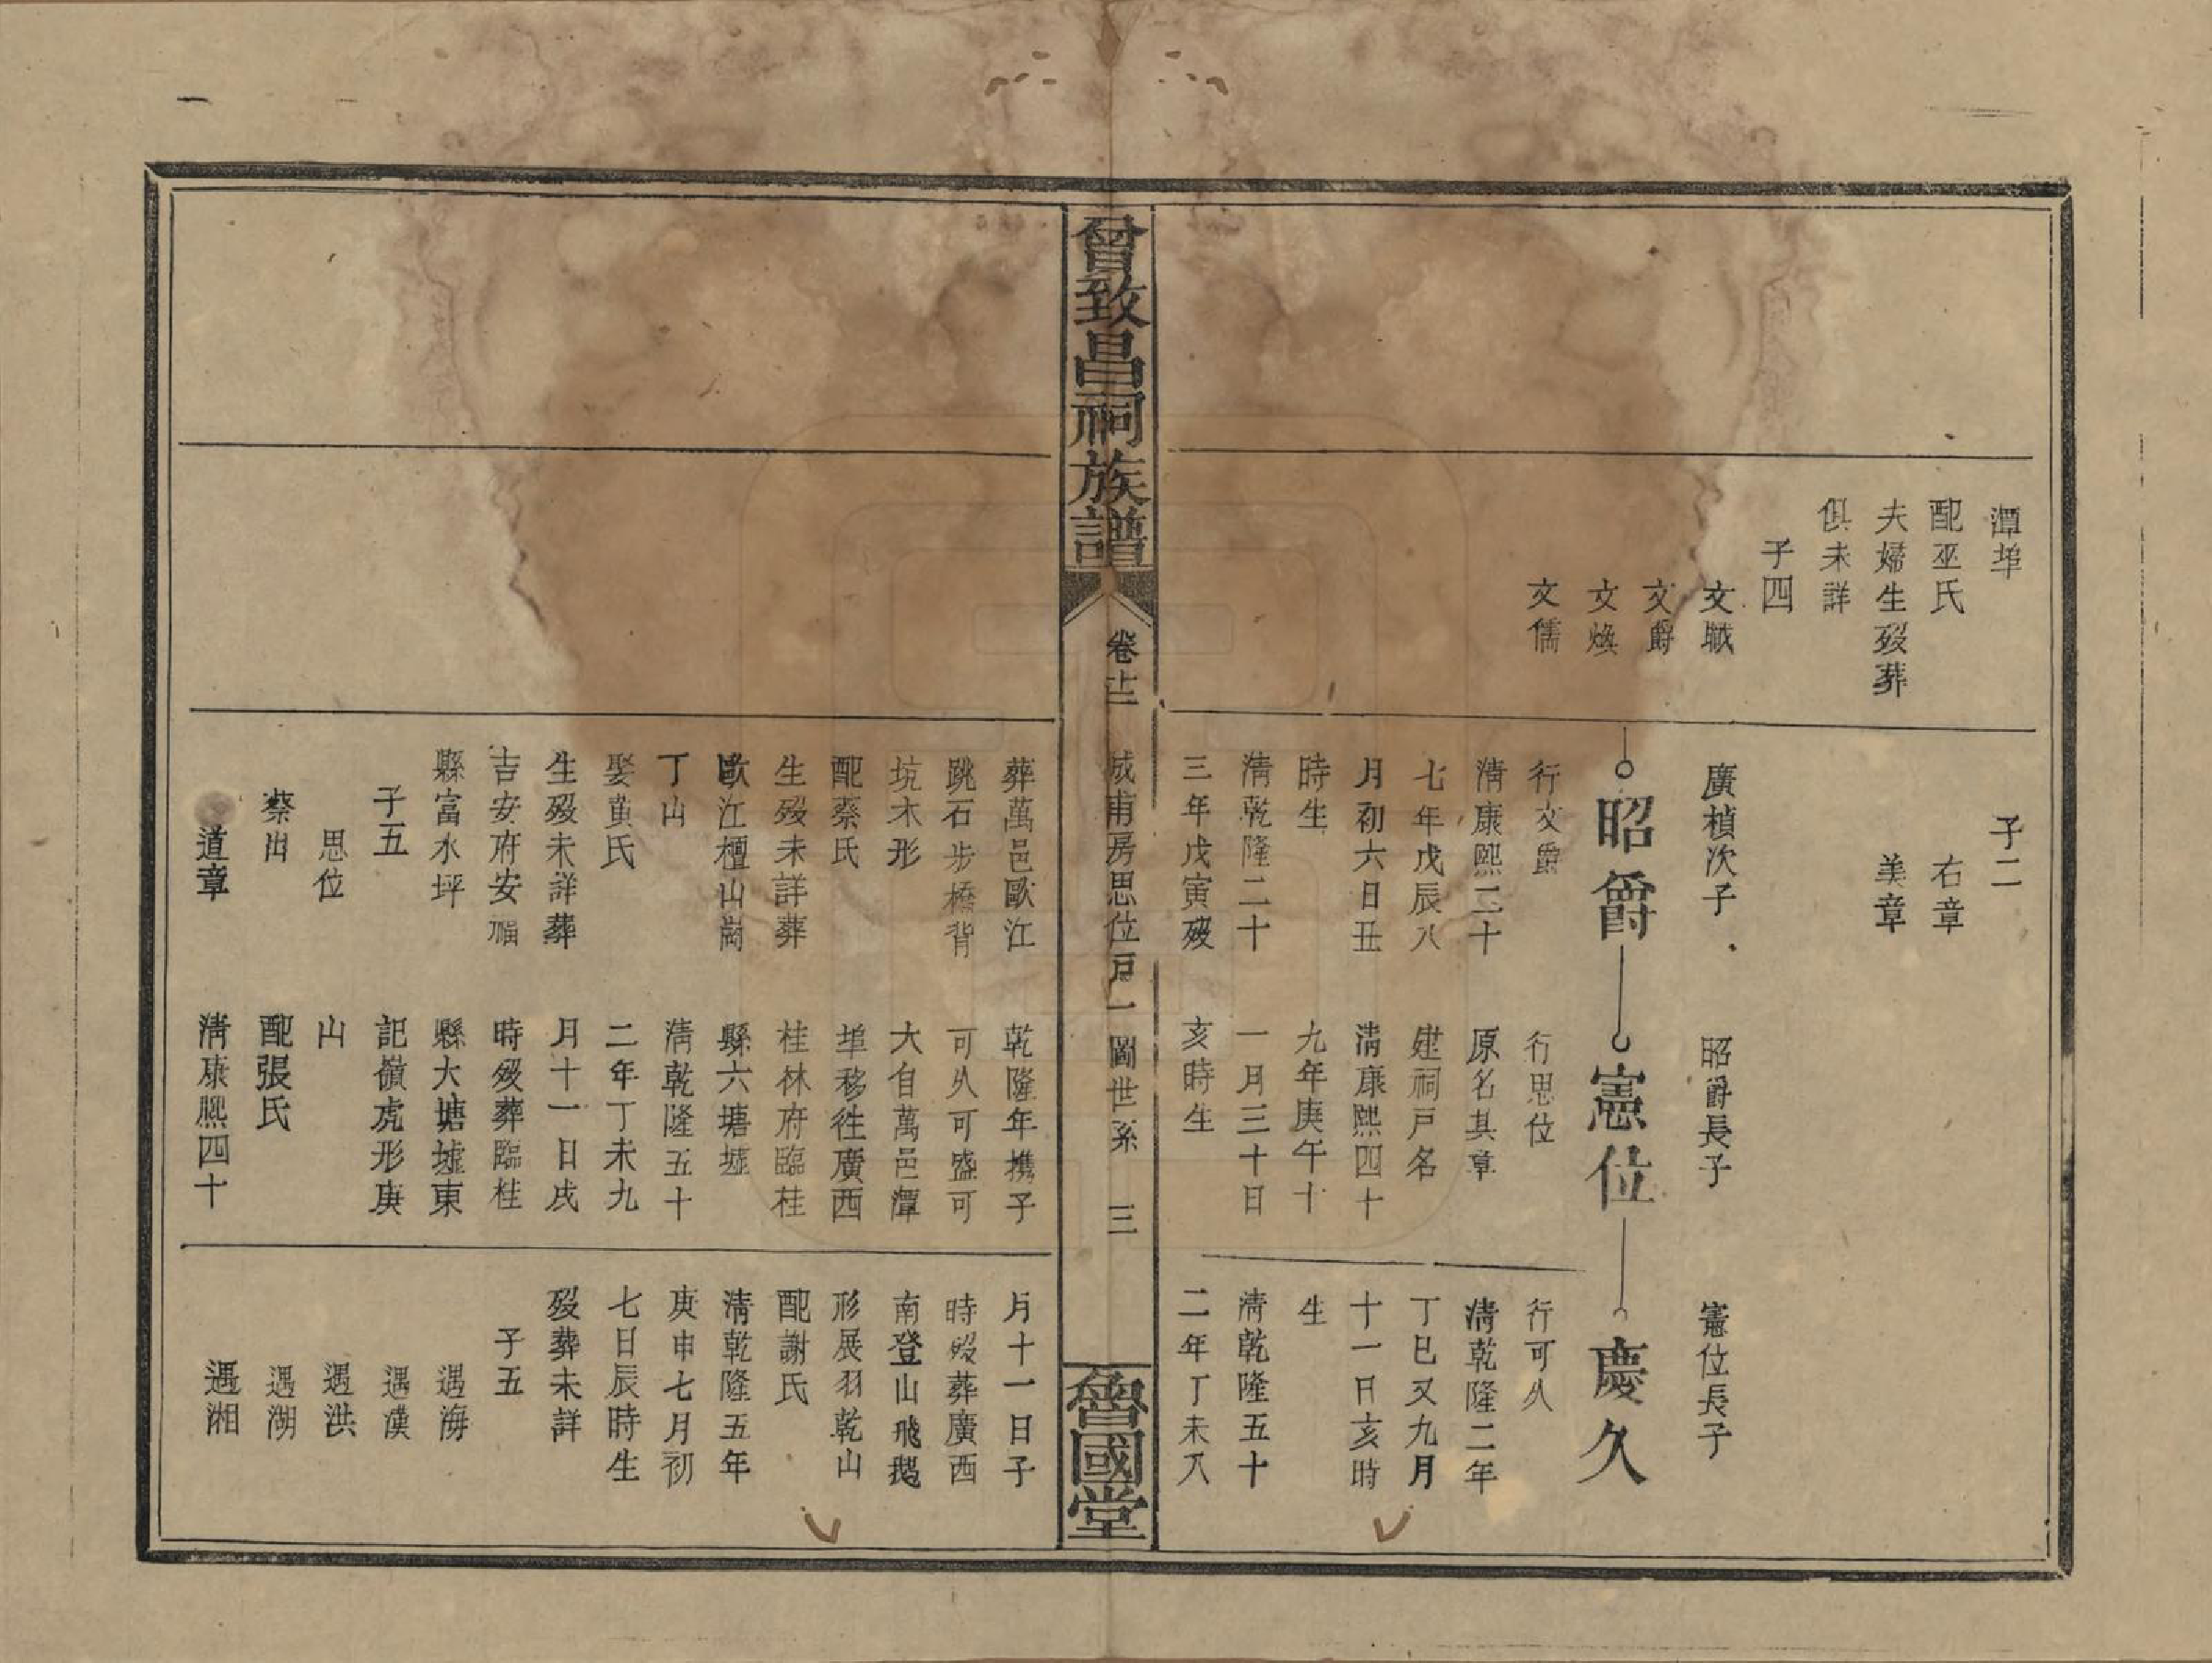 潭埠
配巫氏
夫婦生歿葬
俱未詳
子四
文職
文爵
文煥
文儒
子二
右章
美章
廣楨次子
昭爵
行文爵
清康熙二十
七年戊辰八
月初六日丑
時生
清乾隆二十
三年戊寅歿
昭爵長子
憲位
行思位
原名其章
建祠戸名
清康熙四十
九年庚午十
一月三十日
亥時生
憲位長子
慶久
行可久
清乾隆二年
丁巳又九月
十一日亥時
生
清乾隆五十
二年丁未八
曾致昌祠族譜
卷廿二
成甫房思位戸一圖世系
三
魯國堂
葬萬邑歐江
跳石步橋背
坑木形
配蔡氏
生歿未詳葬
歐江檀山崗
丁山
娶黄氏
生歿未詳葬
吉安府安福
縣富水坪
子五
思位
蔡出
道章
乾隆年携子
可久可盛可
大自萬邑潭
埠移徃廣西
桂林府臨桂
縣六塘墟
清乾隆五十
二年丁未九
月十一日戌
時歿葬臨桂
縣大塘墟東
記嶺虎形庚
山
配張氏
清康熙四十
月十一日子
時歿葬廣西
南登山飛鵝
形展羽乾山
配謝氏
清乾隆五年
庚申七月初
七日辰時生
歿葬未詳
子五
遇海
遇漢
遇洪
遇湖
遇湘